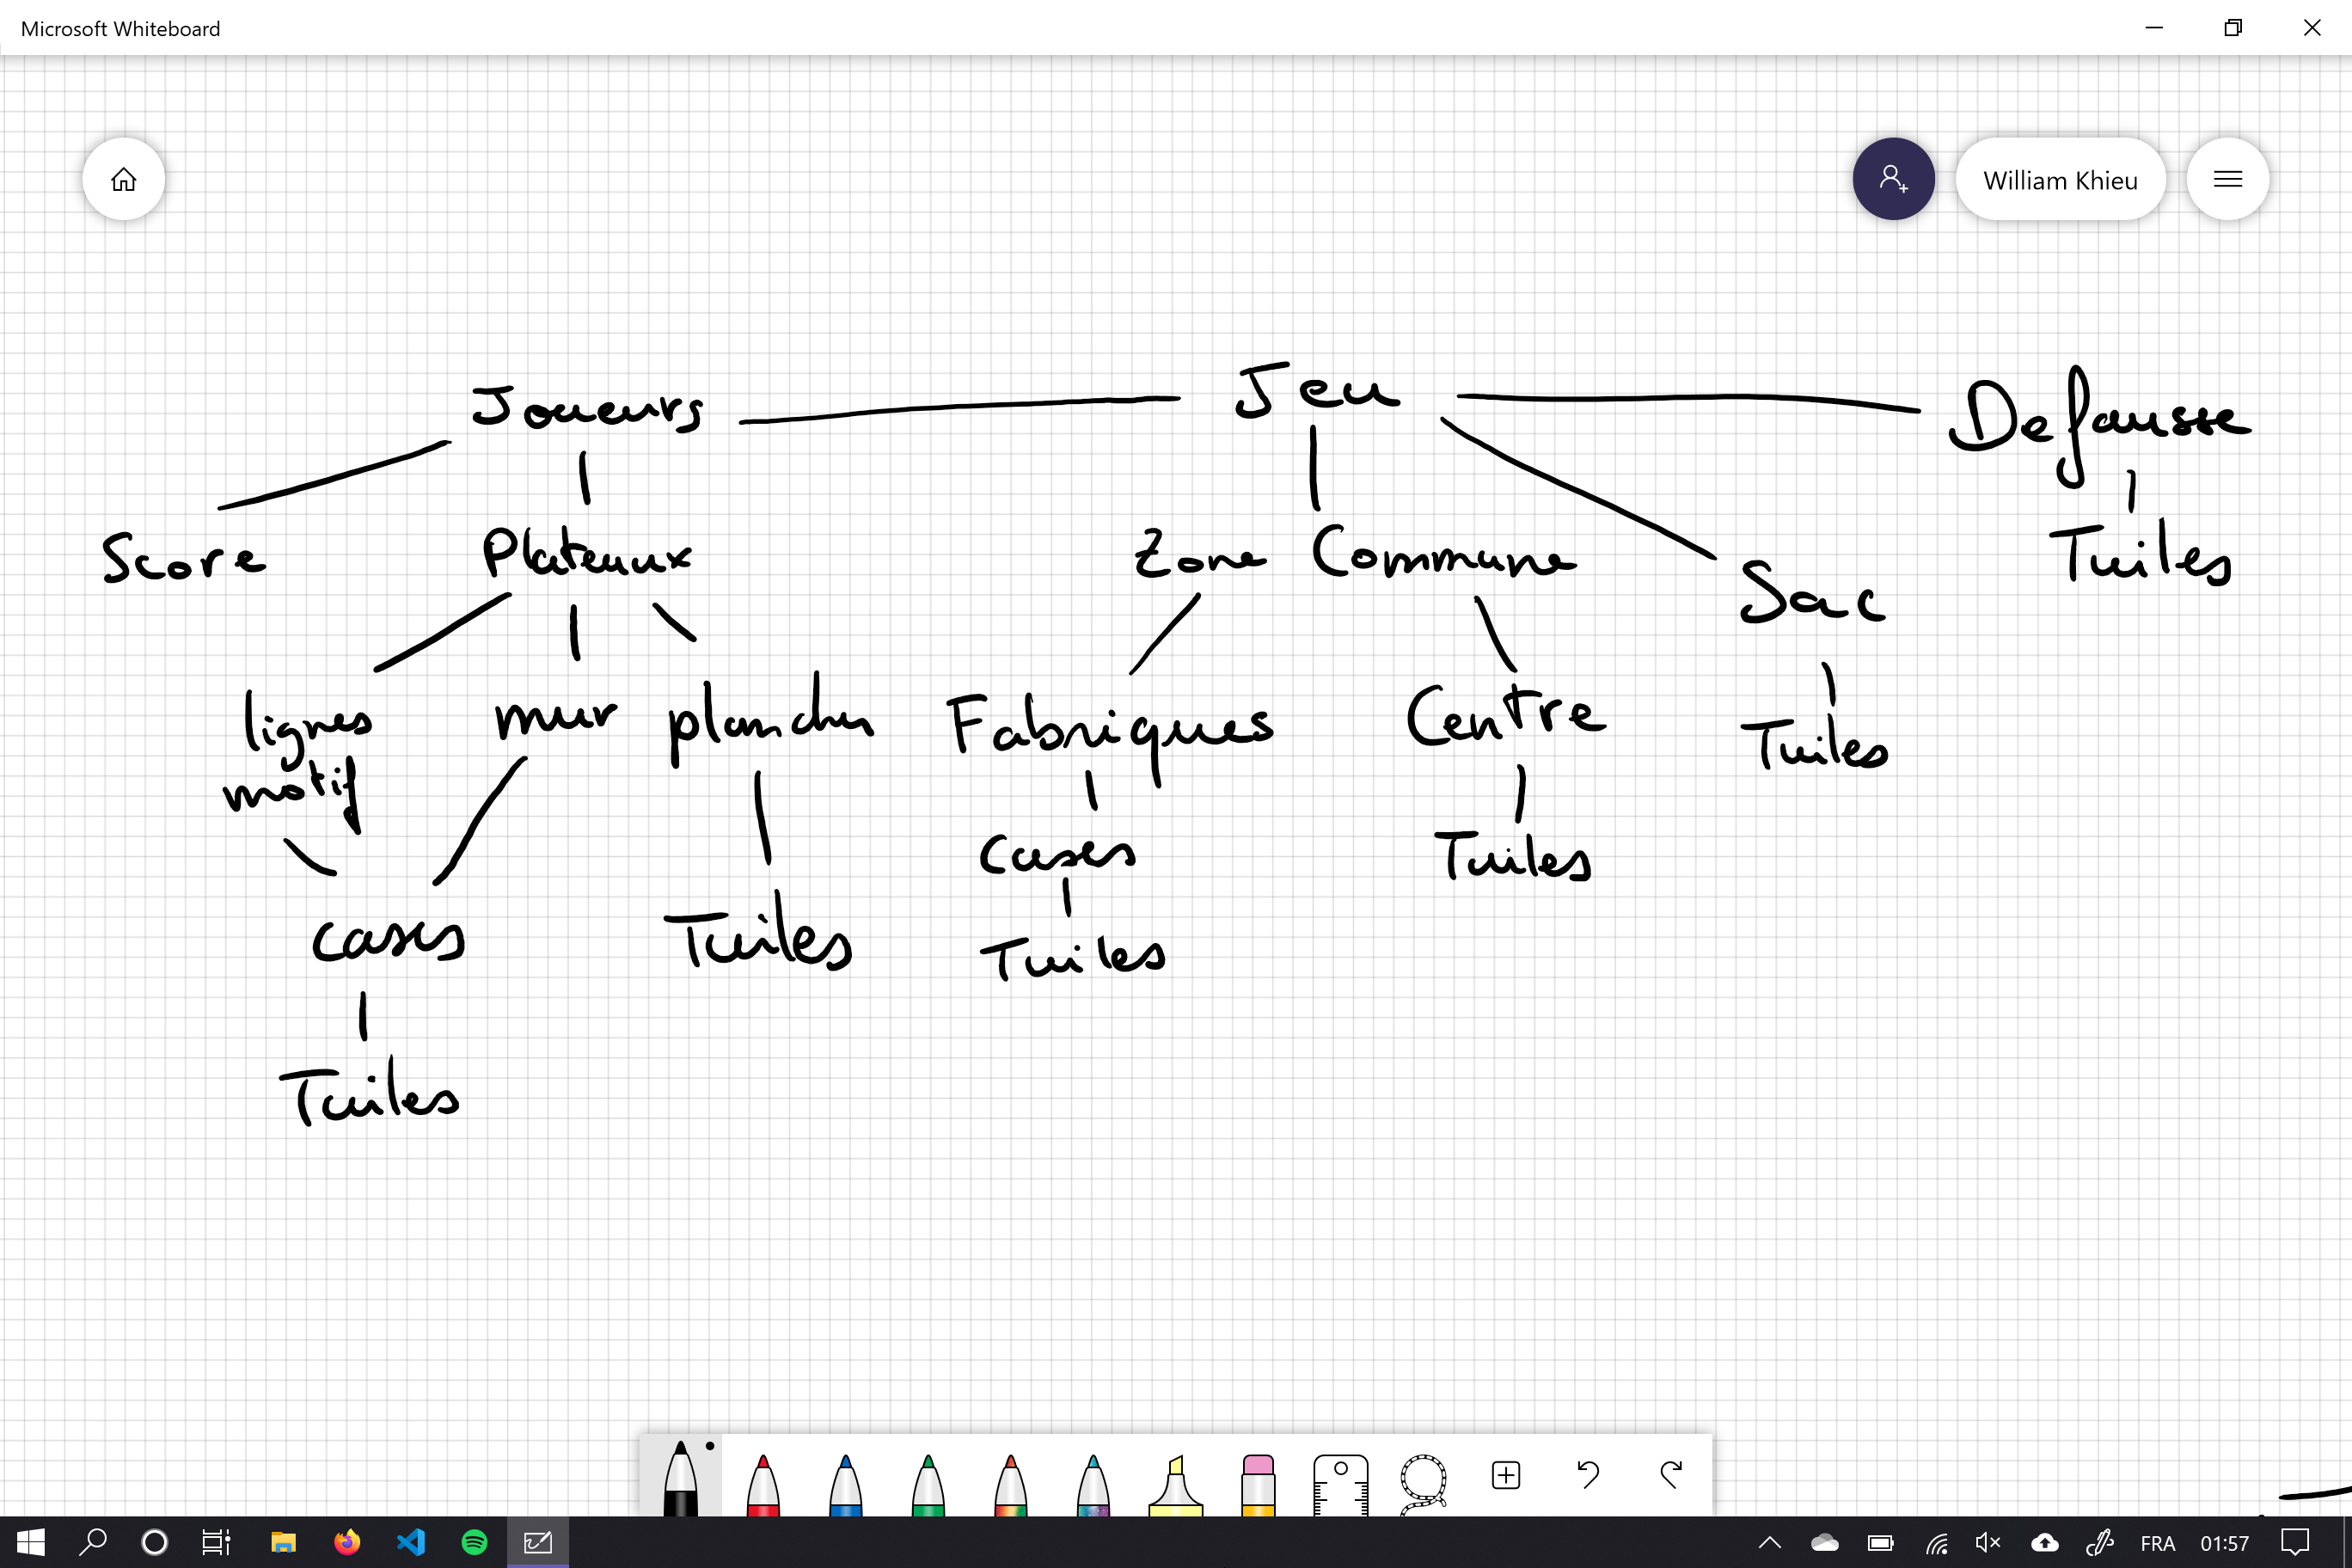 Microsoft Whiteboard
William Khieu
Joueurs
Jeu
Defausse
Score
Plateaux
Zone Commune
Sac
Tuiles
lignes
motif
mur
Fabriques
Centre
Tuiles
cases
Tuiles
cases
Tuiles
Tuiles
Tuiles
FRA
01:57